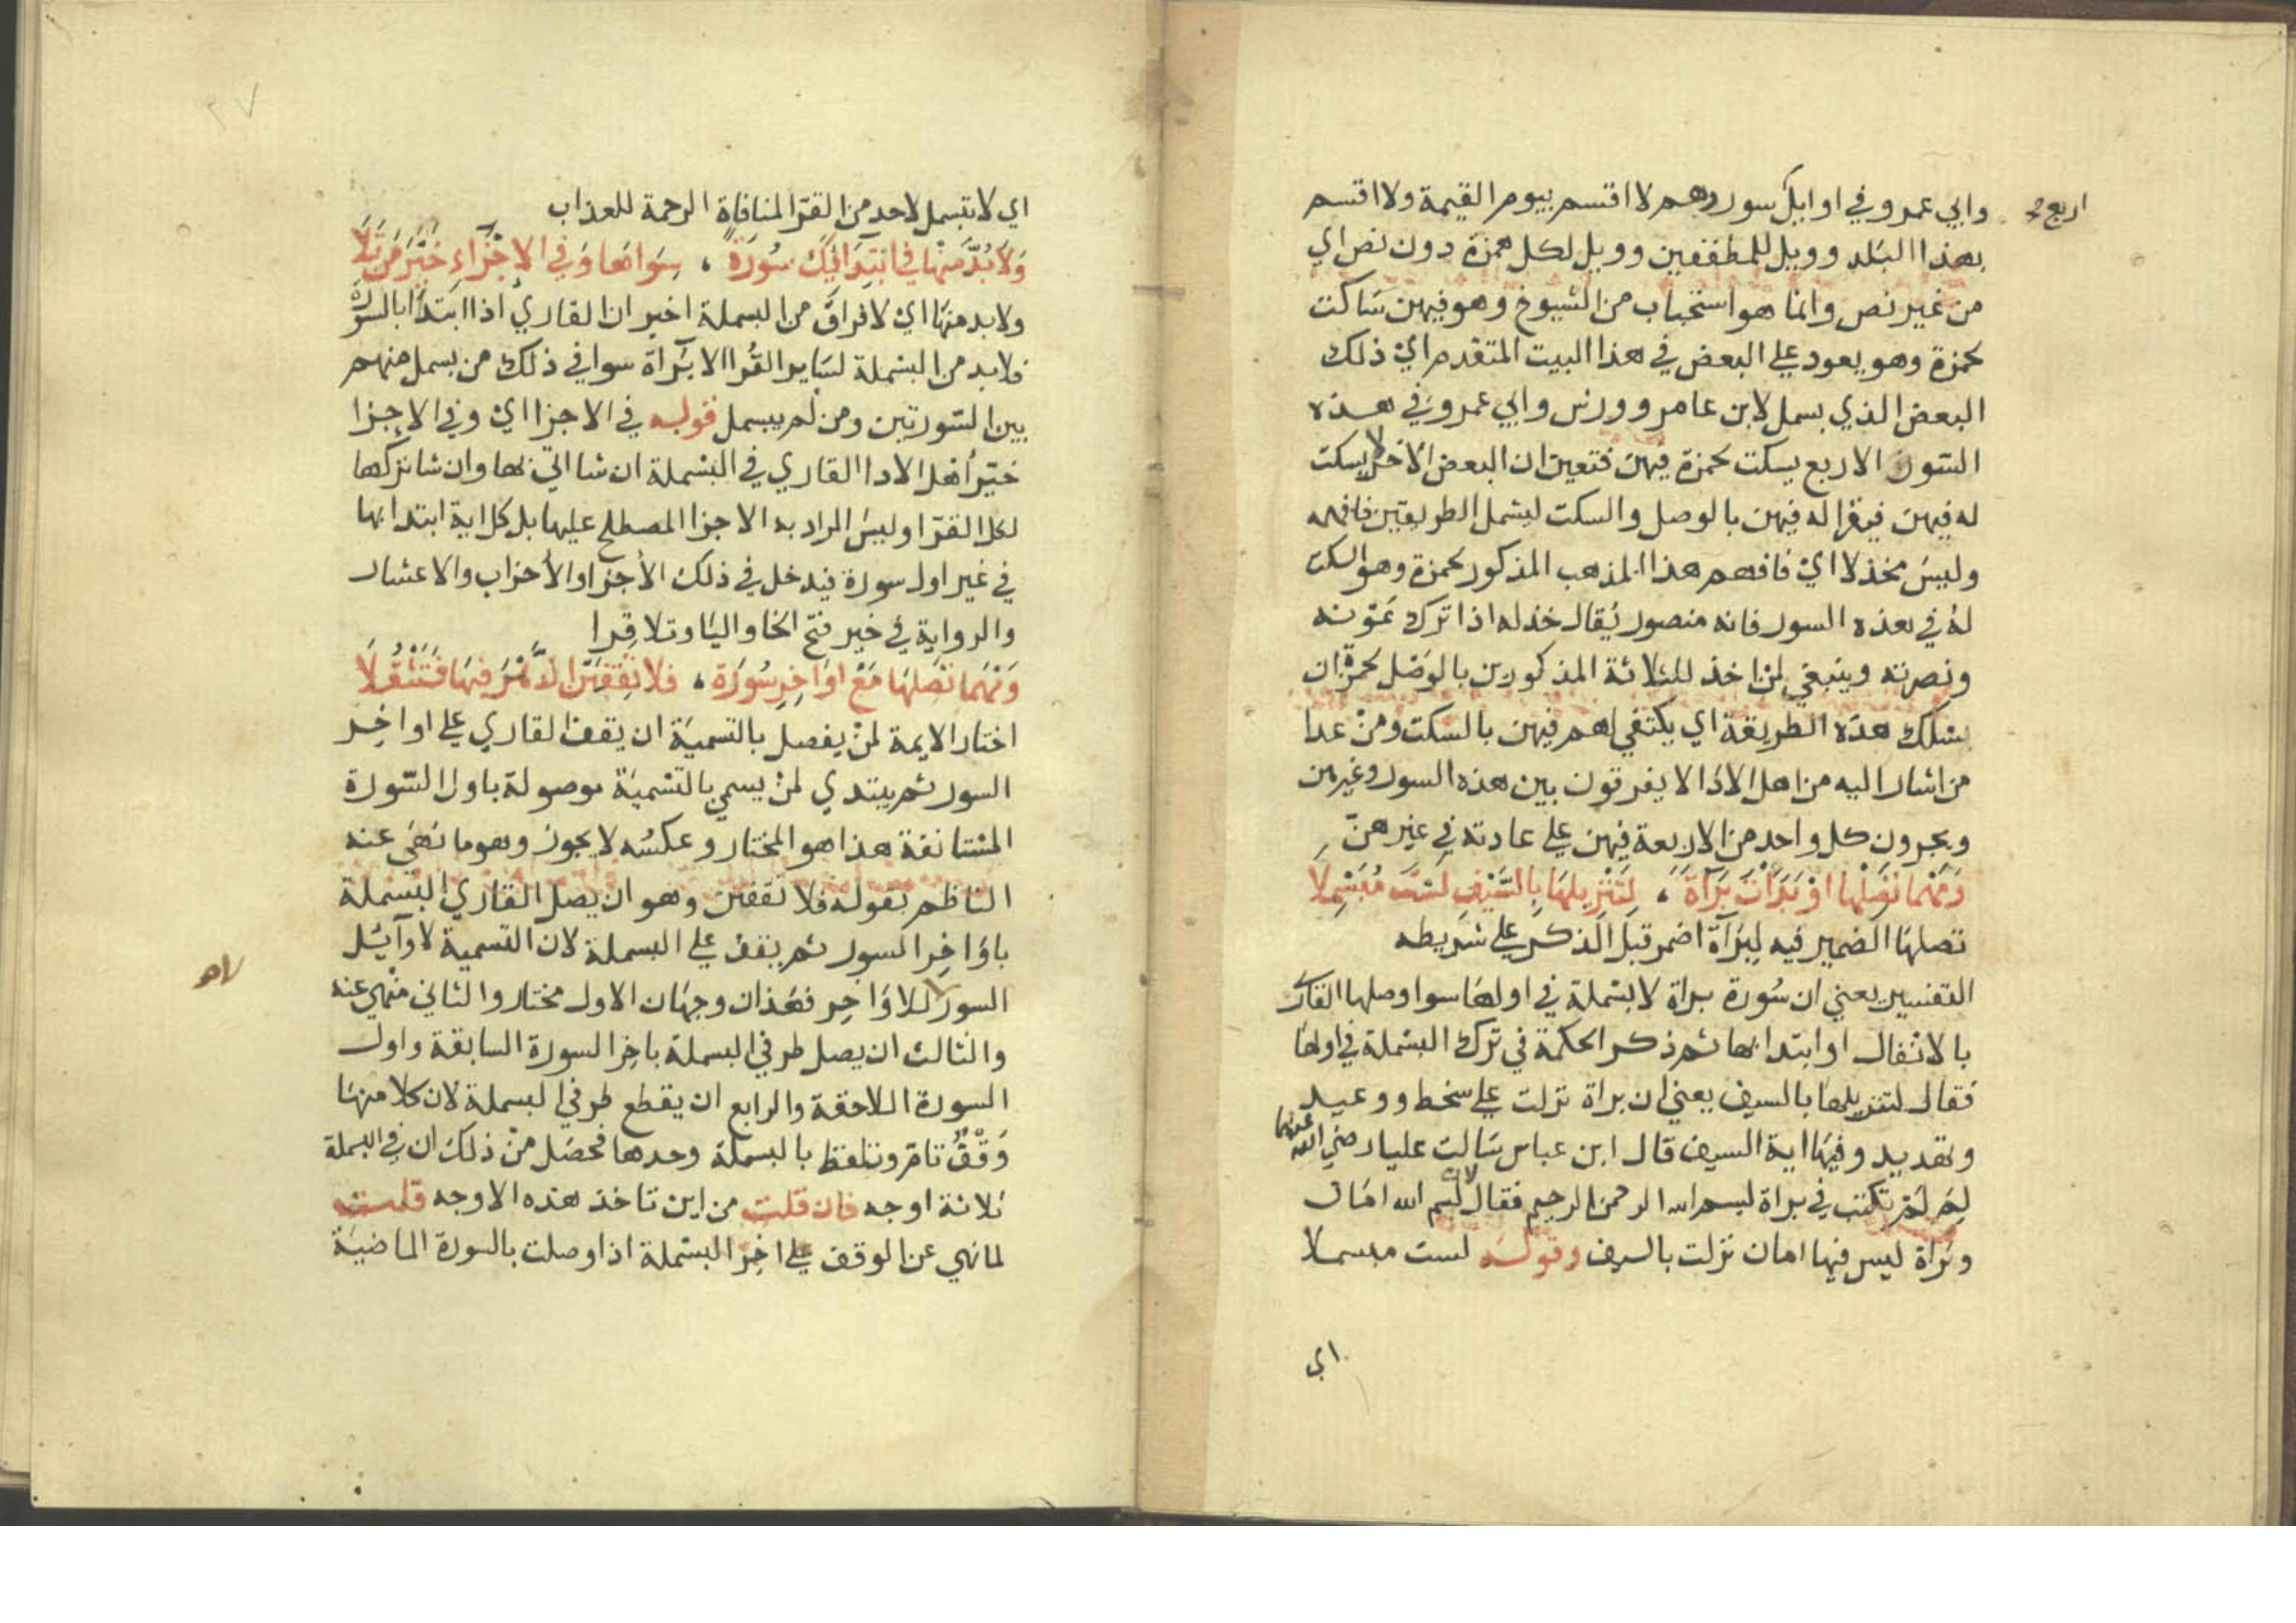 وابي عمرو في اوايل سور وهم لا اقسم بيوم القيمة ولا اقسم
اربع صح
بهذا البلد وويل للمطففين وويل لكل همزة دون نص اي
من غير نص وانما هو استحباب من الشيوخ وهو فيهن ساكت
لحمزة وهو يعود علي البعض في هذا البيت المتقدم اي ذلك
البعض الذي بسمل لابن عامر وورش وابي عمرو في هذه
السور الاربع يسكت لحمزة فيهن فتعين ان البعض الاخر لا يسكت
له فيهن فيقرا له فيهن بالوصل والسكت ليشمل الطريقين فافهمه
وليس مخذلا اي فافهم هذا المذهب المذكور لحمزة وهو السكت
له في هذه السور فانه منصور يقال خذله اذا ترك عونه
ونصرته وينبغي لمن اخذ للثلاثة المذكورين بالوصل لحمزة ان
يسلك هذه الطريقة اي يكتفي لهم فيهن بالسكت ومن عدا
من اشار اليه من اهل الادا لا يفرقون بين هذه السور وغيرهن
ويجرون كل واحد من الاربعة فيهن علي عادته في غيرهن
وَمَهْمَا تَصِلْهَا اوْ بَدَأْتَ بَرَآةً ، لِتَنْزِيلِهَا بِالسَّيْفِ لَسْتَ مُبَسْمِلَا
تصلها الضمير فيه لبرآة اضمر قبل الذكر علي شريطه
التفسير يعني ان سورة براة لا بسملة في اولها سوا وصلها القاري
بالانفال او ابتدا بها ثم ذكر الحكمة في ترك البسملة في اولها
فقال لتنزيلها بالسيف يعني ان براة نزلت علي سخط ووعيد
وتهديد وفيها اية السيف قال ابن عباس سالت عليا رضي الله عنهما
لِمَ لَمْ تكتب في براة بسم الله الرحمن الرحيم فقال لان بسم الله امان
وبراة ليس فيها امان نزلت بالسيف وقوله لست مبسملا
اي
اي لا تبسمل لاحد من القرا لمنافاة الرحمة للعذاب
وَلَا بُدَّ مِنْهَا فِي ابْتِدَائِكَ سُورَةً ، سِوَاهَا وَفِي الاجْزَاءِ خَيَّرَ مَنْ تَلَا
ولا بد منها اي لا فراق من البسملة اخبر ان القاري اذا ابتدا بالسورة
فلا بد من البسملة لساير القرا الا برآة سوا في ذلك من بسمل منهم
بين السورتين ومن لم يبسمل قوله في الاجزا اي وفي الاجزا
خيّر اهل الادا القاري في البسملة ان شا اتي بها وان شا تركها
لكل القرا وليس المراد به الاجزا المصطلح عليها بل كل اية ابتدا بها
في غير اول سورة فيدخل في ذلك الاجزا والاحزاب والاعشار
والرواية في خير فتح الخا واليا وتلا قرا
وَمَهْمَا تَصِلْهَا مَعْ اوَاخِرِ سُورَةٍ ، فلا تَقِفَنَّ الدَّهْرَ فِيهَا فَتَثْقُلَا
اختار الايمة لمن يفصل بالتسمية ان يقف القاري علي اواخر
السور ثم يبتدي لمن يسمي بالتسمية موصولة باول السورة
المستانفة هذا هو المختار وعكسه لا يجوز وهو ما نهي عنه
الناظم بقوله فلا تقفن وهو ان يصل القاري البسملة
باواخر السور ثم يقف علي البسملة لان التسمية لاوآيل
السور لا للاواخر فهذان وجهان الاول مختار والثاني منهي عنه
والثالث ان يصل طرفي البسملة باخر السورة السابقة واول
السورة اللاحقة والرابع ان يقطع طرفي البسملة لان كلا منها
وقف تام وتلفظ بالبسملة وحدها فحصل من ذلك ان في البسملة
ثلاثة اوجه فان قلت من اين تاخذ هذه الاوجه قلت
لما نهي عن الوقف علي اخر البسملة اذا وصلت بالسورة الماضية